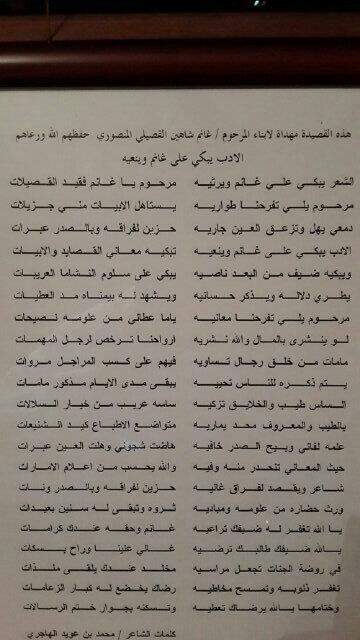 هذه القصيدة مهداة لابناء المرحوم / غانم شاهين القصيلي المنصوري حفظهم الله ورعاهم
الادب يبكي على غانم وينعيه
الشعر يبكي علي غانم ويرثيه مرحوم يا غانم فقيد القصيلات
مرحوم يلي تفرحنا طواريه يستاهل الابيات مني جزيلات
دمعي يهل وتزعق العين جاريه حزين لفراقه وبالصدر عبرات
الادب يبكي على غانم وينعيه تبكيه معاني القصايد والابيات
ويبكيه ضيف من البعد ناصيه يبكي على سلوم النشاما العريبات
يطري دلاله ويذكر حسانيه ويشهد له بيمناه مد العطيات
مرحوم يلي تفرحنا معانيه ياما عطالى من علومه نصيحات
لو ينشرى بالمال والله نشريه ارواحنا ترخص لرجل المهمات
مامات من خلق رجال تساويه فيهم على كسب المراجل مروات
يتم ذكره للناس تحييه يبقى مدى الايام مذكور مامات
الساس طيب والخلايق تزكيه ساسه عريب من خيار السلالات
طيب وبالمعروف محد يماريه متواضع الاطباع كيد الشنيعات
علمه لفانى ويبح الصدر خافيه هاضت شجوني وهلت العين عبرات
حيث المعاني تنحدر منه وفيه والله يحسب من اعلام الامارات
شاعر ويقصد لفراق غاليه حزين لفراقه وبالصدر ونات
ورث حضاره من علومه ومباديه ثروه وتبقى له سنين بعيدات
يا الله تغفر له ضيفك تراعيه غانم وحقه عندك كرامات
يالله ضيفك طالبك ترضيه غالي علينا وراح بسكات
في روضة الجنات تجعل مراسيه مخلد عندك يلقى ملذات
تغفر ذنوبه وتمسح مخاطيه رضاك يخضع له كبار الزعامات
وختامها يالله برضاك تعطيه وتسكنه بجوار ختم الرسالات
كلمات الشاعر / محمد بن عويد الهاجري